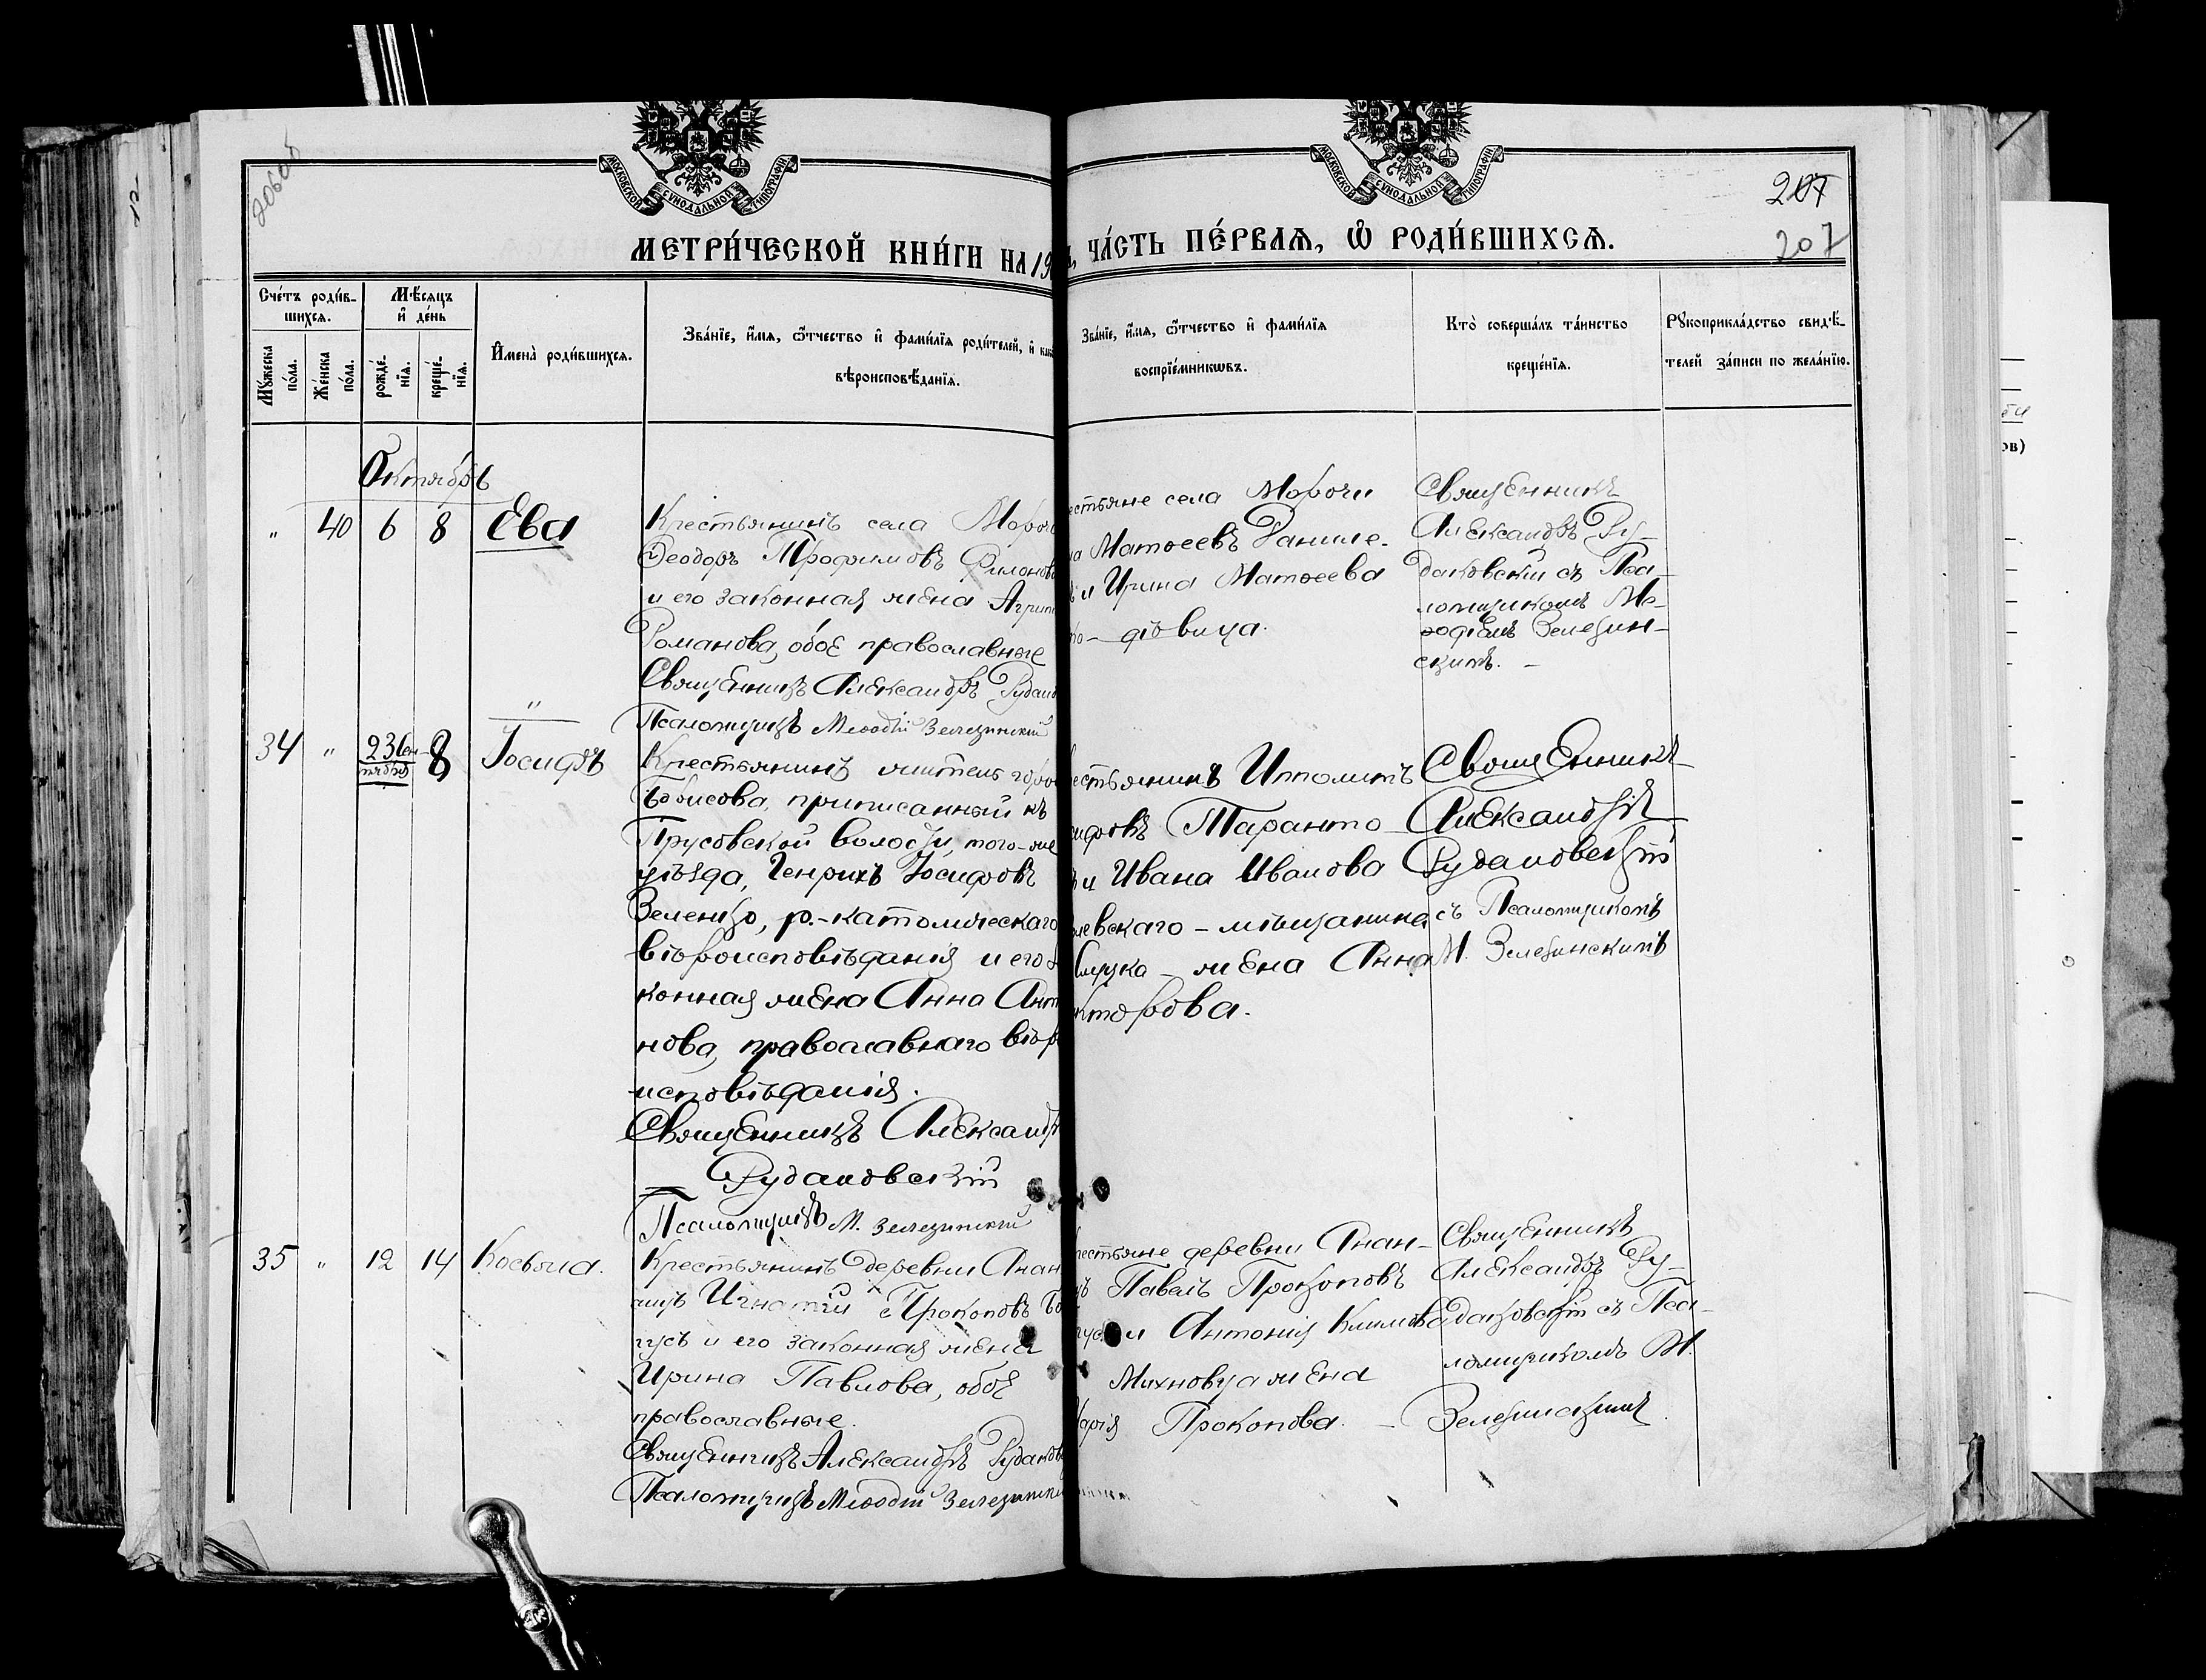 МОСКОВСКОЙ СѴНОДАЛЬНОЙ ТИПОГРАФІИ
МОСКОВСКОЙ СѴНОДАЛЬНОЙ ТИПОГРАФІИ
207
207
МЕТРИ́ЧЕСКОЙ КНИ́ГИ НА 19
ЧА́СТЬ ПЕ́РВАѦ, Ѡ҆ РОДИ́ВШИХСѦ.
Сче́тъ роди́в-
шихсѧ.
Мꙋ́жеска по́ла.
Же́нска по́ла.
Мѣ́сѧцъ
и҆ де́нь
рожде́-нїѧ.
креще́-нїѧ.
И҆мена̀ роди́вшихсѧ.
Зва́нїе, и҆́мѧ, ѿ́чество и҆ фами́лїѧ роди́телей, и҆
вѣроисповѣ́данїѧ.
Зва́нїе, и҆́мѧ, ѿ́чество и҆ фами́лїѧ
воспрїе́мникѡвъ.
Кто̀ соверша́лъ та́инство
креще́нїѧ.
Рꙋкоприкла́дство свидѣ́-
телей за́писи по жела́нїю.
Октябрь
" 40 6 8 Ева
Крестьянинъ села
Ѳеодоръ Трофимовъ
и его законная жена
Романова, обое православные
Священникъ Александръ
Псаломщикъ Меѳодій Зелезинскій
села Морочи
Матѳеевъ Даниле-
и Ирина Матѳеева
Священникъ
Александръ Ру-
даковскій съ Пса-
ломщикомъ Ме-
ѳодіемъ Зелезин-
скимъ. -
34 " 23 Сен-
тября 8 Іосифъ
Крестьянинъ житель
Борисова, приписанный къ
Прусовской волости, того-же
уѣзда, Генрихъ Іосифовъ
Зеленко, р.-католическаго
вѣроисповѣданія и его
конная жена Анна
нова, православнаго
исповѣданія.
Священникъ Александръ
Рудаковскій
Псаломщикъ М. Зелезинскій
Таранто
и Ивана Иванова
мѣщанина
жена Анна
Священникъ
Александръ
Рудаковскій
съ Псаломщикомъ
М. Зелезинскимъ
35 " 12 14 Косьма.
Крестьянинъ деревни
Игнатій Прокоповъ
гусъ и его законная жена
Ирина Павлова, обое
православные.
Священникъ Александръ
Псаломщикъ Меѳодій
деревни Анан-
Павелъ Прокоповъ
и Антонія Климова
Михновца жена
Прокопова. -
Священникъ
Александръ Ру-
даковскій съ Пса-
ломщикомъ М.
Зелезинскимъ